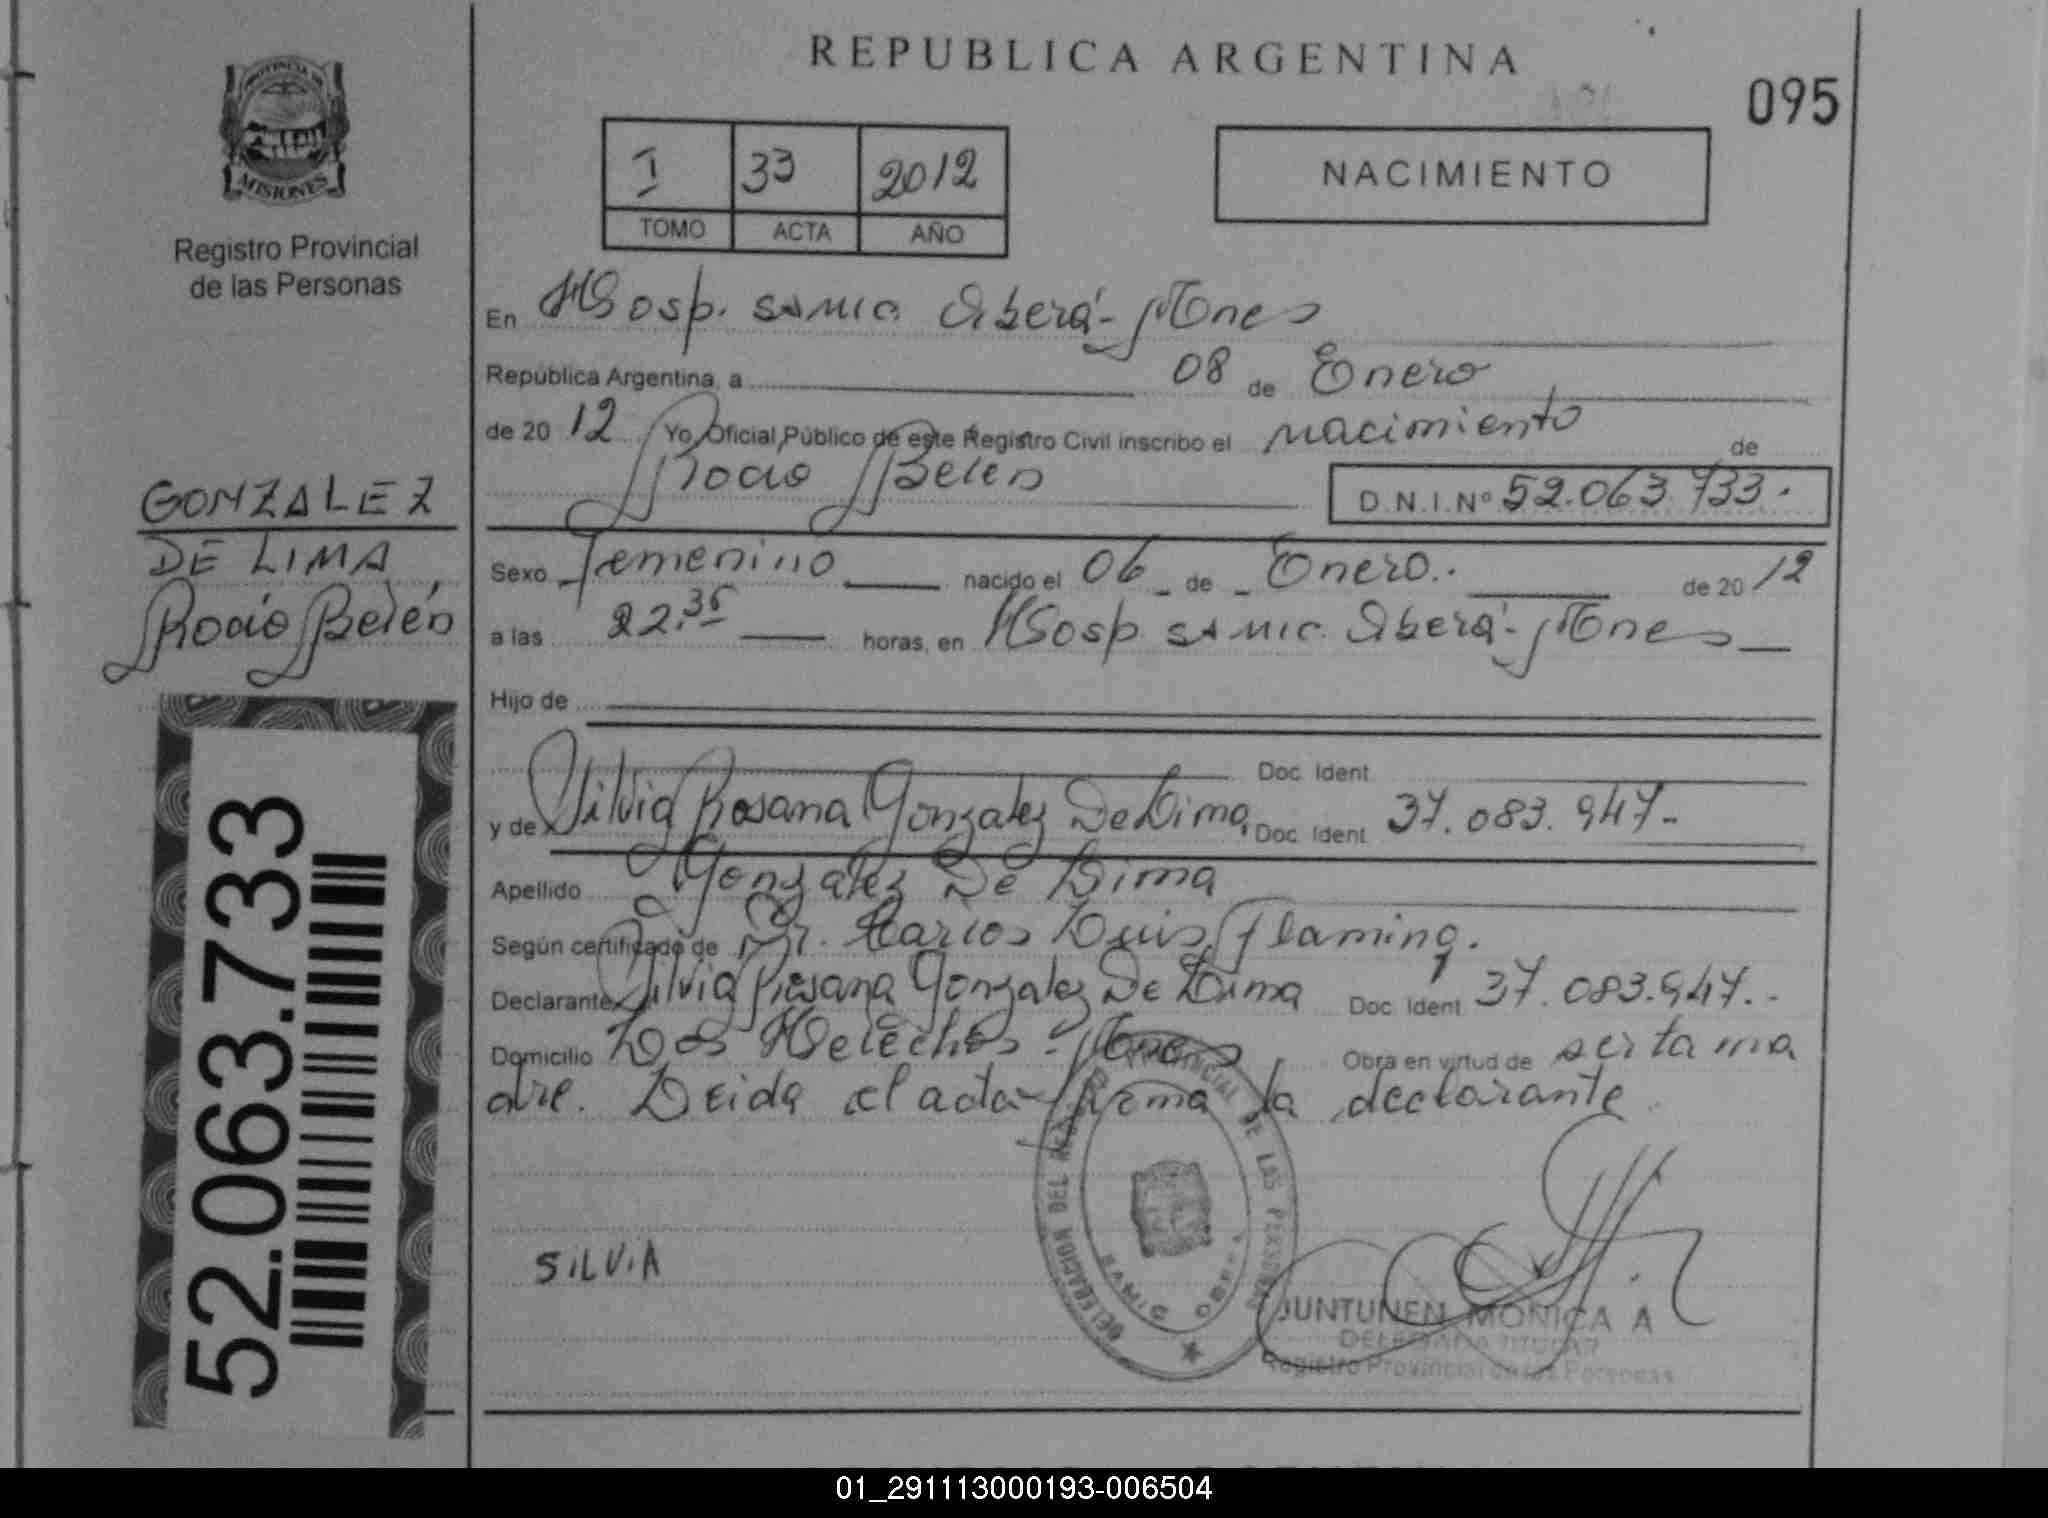 REPUBLICA ARGENTINA
095
PROVINCIA DE
MISIONES
Registro Provincial
de las Personas
I 33 2012
TOMO ACTA AÑO
NACIMIENTO
En Hosp. SAMIC Oberá - Mnes
República Argentina, a 08 de Enero
de 20 12 Yo Oficial Público de este Registro Civil inscribo el nacimiento de
Rocio Belén
D.N.I. Nº 52.063.733.
GONZALEZ
DE LIMA
Rocio Belén
Sexo Femenino nacido el 06 de Enero.. de 20 12
a las 22.35 horas, en Hosp. SAMIC. Oberá - Mnes
Hijo de
Doc. Ident.
y de Silvia Rosana Gonzalez De Lima, Doc. Ident. 37.083.947-
Apellido Gonzalez De Lima
Según certificado de Dr. Carlos Luis
Declarante Silvia Rosana Gonzalez De Lima Doc. Ident. 37.083.947.-
Domicilio Los Helechos - Mnes Obra en virtud de ser la ma
dre. Leida el acta firma la declarante
52.063.733
SILVIA
DELEGACION DEL REGISTRO PROVINCIAL DE LAS PERSONAS
SAMIC OBERA
JUNTUNEN MONICA A
DELEGADA TITULAR
Registro Provincial de las Personas
01_291113000193-006504